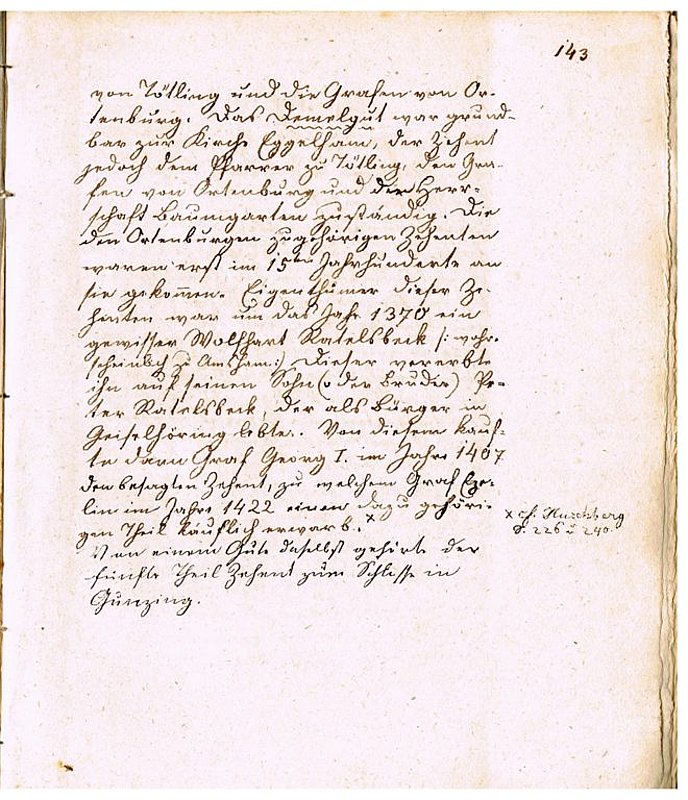 143
von Tötling und die Grafen von Or-
tenburg. Das Demelgut war grund-
bar zur Kirche Eggelham, der Zehent
jedoch dem Pfarrer zu Tötling, den Gra-
fen von Ortenburg und der Herr-
schaft Baumgarten zuständig. Die
den Ortenburgen zugehörigen Zehenten
waren erst im 15ten Jahrhunderte an
sie gekommen. Eigenthümer dieser Ze-
henten war um das Jahr 1370 ein
gewisser Wolfhart Ratelsbeck /: wahr-
scheinlich zu Amsham :/ Dieser vererbte
ihn auf seinen Sohn (o der Bruder) Pe-
ter Ratelsbeck, der als Bürger in
Geiselhöring lebte. Von diesem kauf-
te dann Graf Georg I. im Jahre 1407
den besagten Zehent, zu welchem Graf Eze-
lin im Jahre 1422 einen dazu gehöri-
gen Theil käuflich erwarb. x
x cf. Huschberg
S. 226 u 240.
Von einem Gute daselbst gehörte der
fünfte Theil Zehent zum Schlosse in
Gunzing.